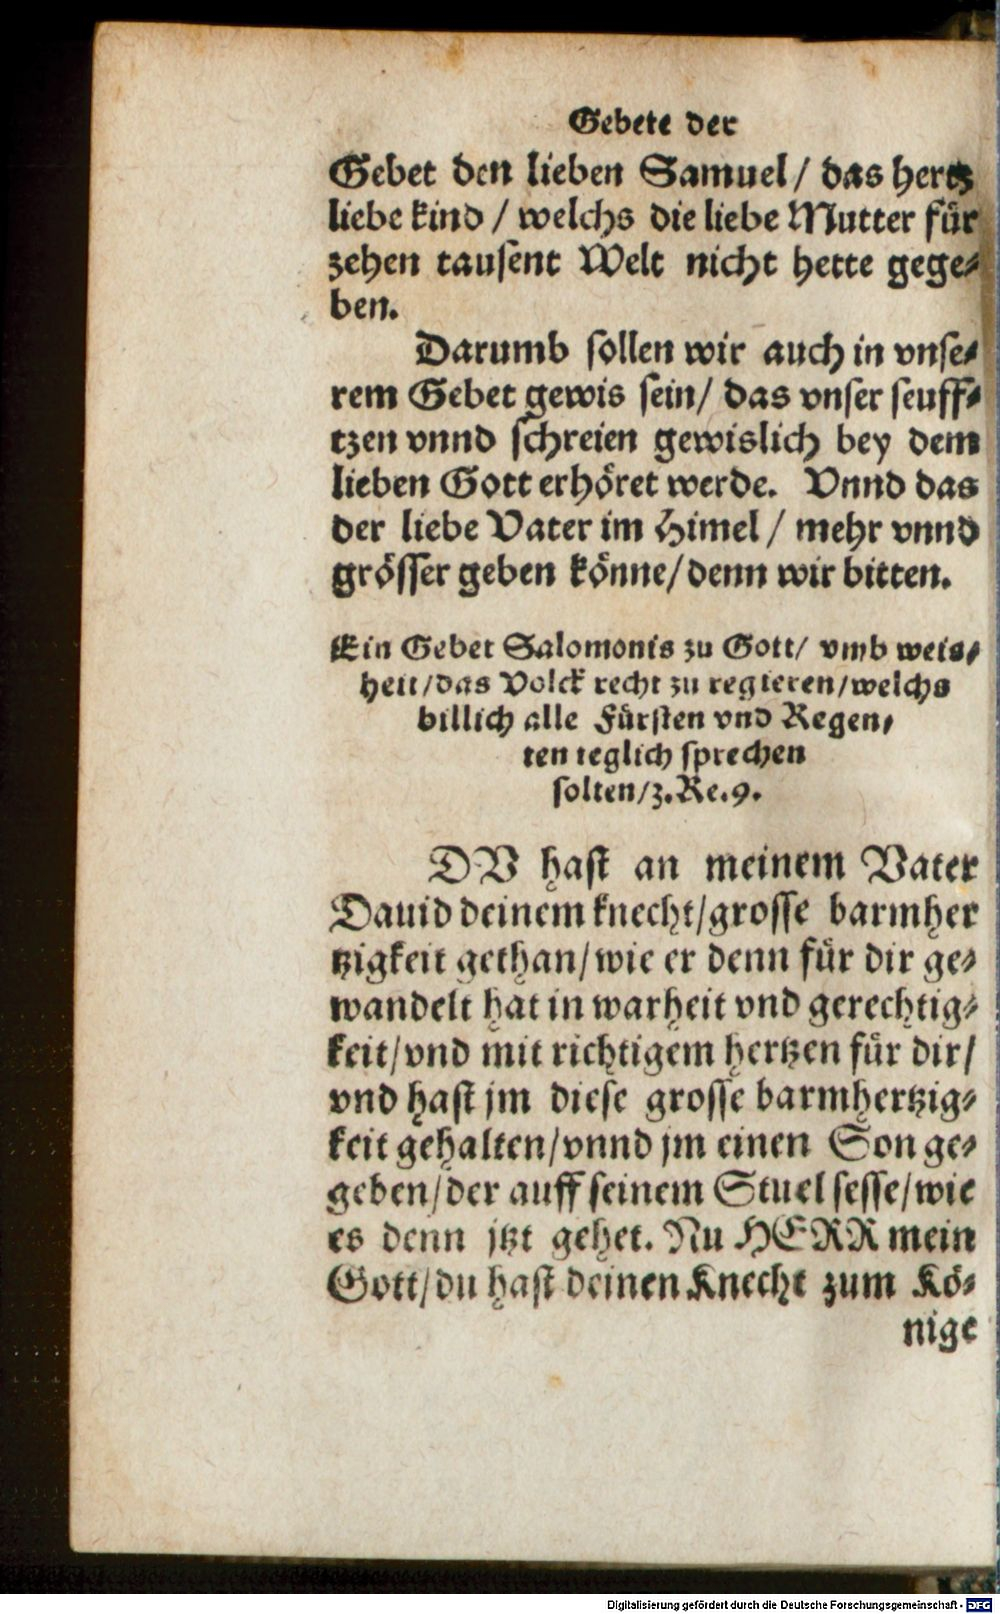 Gebete der
Gebet den lieben Samuel/ das hertz
liebe kind / welchs die liebe Mutter für
zehen tausent Welt nicht hette gege-
ben.
Darumb sollen wir auch in vnse-
rem Gebet gewis sein/ das vnser seuff-
tzen vnnd schreien gewislich bey dem
lieben Gott erhöret werde. Vnnd das
der liebe Vater im Himel / mehr vnnd
grösser geben könne/ denn wir bitten.
Ein Gebet Salomonis zu Gott/ vmb weis-
heit/das Volck recht zu regieren/welchs
billich alle Fürsten vnd Regen-
ten teglich sprechen
solten/3.Re.9.
DV hast an meinem Vater
Dauid deinem knecht/grosse barmher
tzigkeit gethan/wie er denn für dir ge-
wandelt hat in warheit vnd gerechtig-
keit/vnd mit richtigem hertzen für dir/
vnd hast jm diese grosse barmhertzig-
keit gehalten/vnnd jm einen Son ge-
geben/der auff seinem Stuel sesse/wie
es denn jtzt gehet. Nu HERR mein
Gott/du hast deinen Knecht zum Kö-
nige
Digitalisierung gefördert durch die Deutsche Forschungsgemeinschaft - DFG